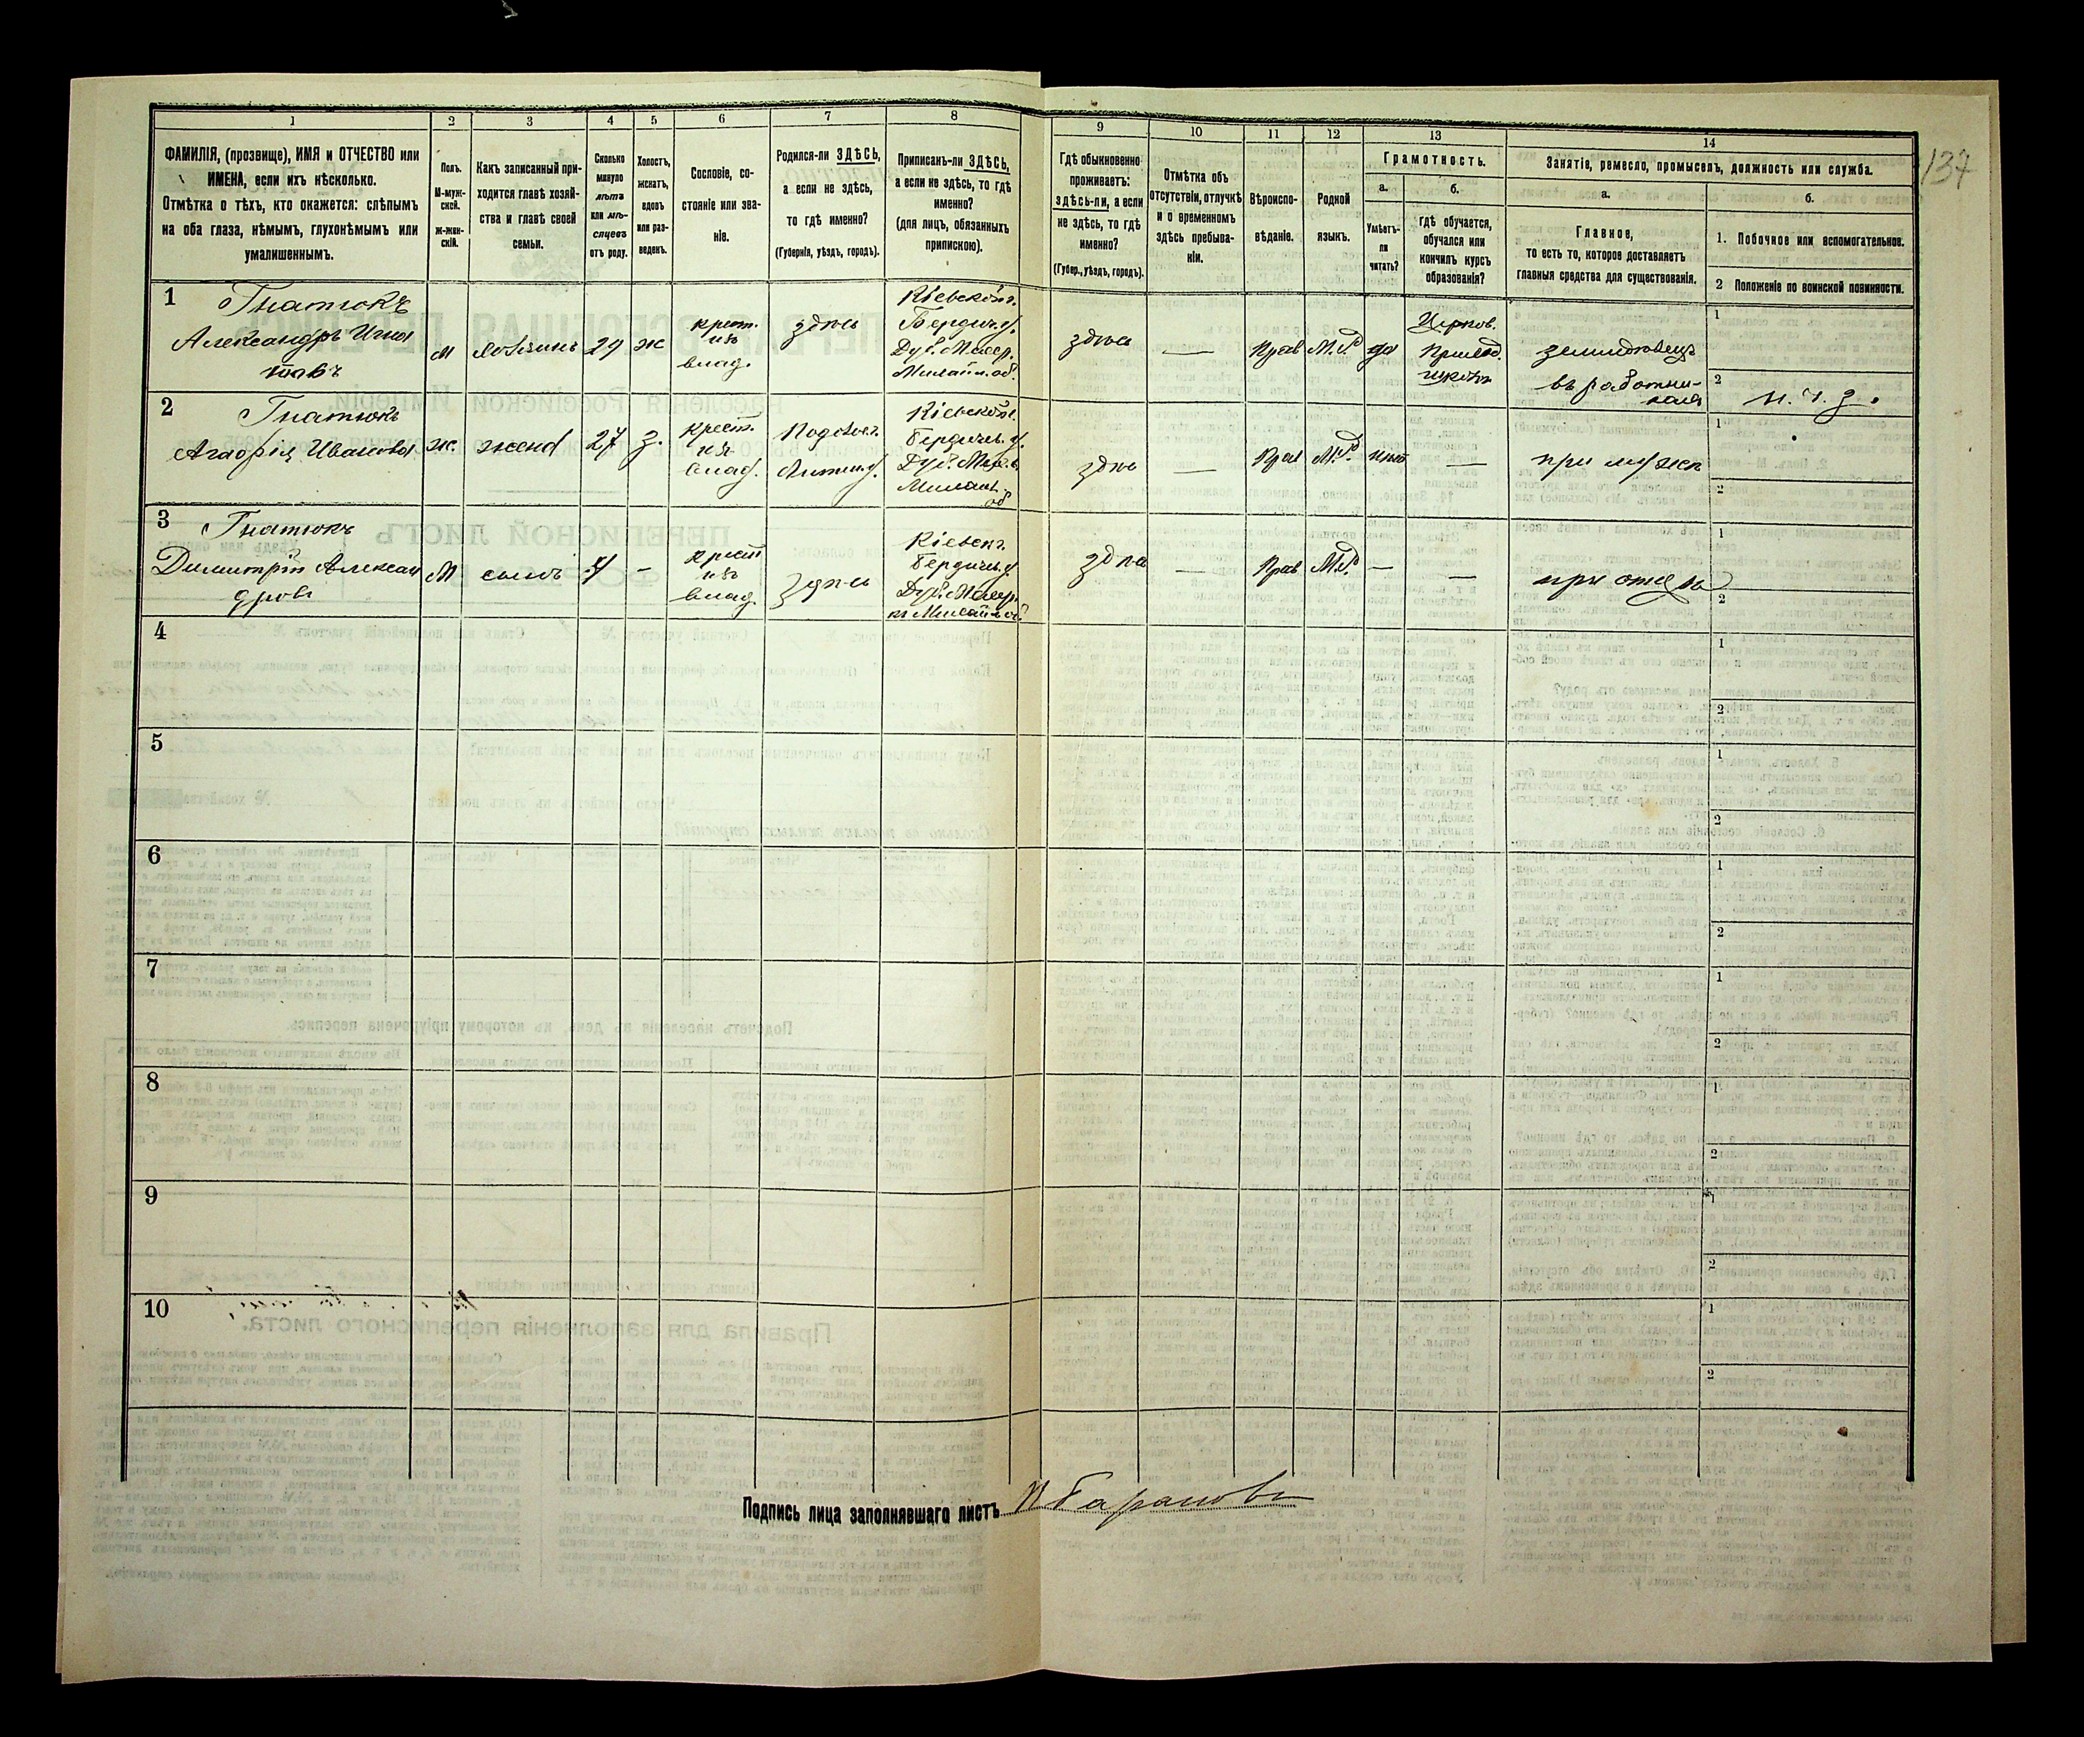 137
1
2
3
4
5
6
7
8
9
10
11
12
13
14
ФАМИЛІЯ, (прозвище), ИМЯ и ОТЧЕСТВО или
ИМЕНА, если ихъ нѣсколько.
Отмѣтка о тѣхъ, кто окажется: слѣпымъ
на оба глаза, нѣмымъ, глухонѣмымъ или
умалишеннымъ.
Полъ.
М-муж-
ской.
Ж-жен-
скій.
Какъ записанный при-
ходится главѣ хозяй-
ства и главѣ своей
семьи.
Сколько
минуло
лѣтъ
или мѣ-
сяцевъ
отъ роду.
Холостъ,
женатъ,
вдовъ
или раз-
веденъ.
Сословіе, со-
стояніе или зва-
ніе.
Родился-ли ЗДѢСЬ,
а если не здѣсь,
то гдѣ именно?
(Губернія, уѣздъ, городъ).
Приписанъ-ли ЗДѢСЬ,
а если не здѣсь, то гдѣ
именно?
(для лицъ, обязанныхъ
припискою).
Гдѣ обыкновенно
проживаетъ:
здѣсь-ли, а если
не здѣсь, то гдѣ
именно?
(Губер., уѣздъ, городъ).
Отмѣтка объ
отсутствіи, отлучкѣ
и о временномъ
здѣсь пребыва-
ніи.
Вѣроиспо-
вѣданіе.
Родной
языкъ.
Грамотность.
а.
Умѣетъ-
ли
читать?
б.
Гдѣ обучается,
обучался или
кончилъ курсъ
образованія?
Занятіе, ремесло, промыселъ, должность или служба.
а.
Главное,
то есть то, которое доставляетъ
главныя средства для существованія.
б.
1. Побочное или вспомогательное.
2 Положеніе по воинской повинности.
1
Гнатюкъ
Александръ Игна
товъ
м
хозяинъ
29
ж
крест.
изъ
влад.
здѣсь
Кіевской г.
Бердич. у.
здѣсь
—
Прав
М.Р.
да
Церков.
Приход.
школѣ
земледѣлецъ
въ работни-
кахъ
1
2
н. ч. з.
2
Гнатюкъ
Агафія Иванова
ж.
жена
27
з.
крест.
изъ
влад.
Подольс. г.
Литин. у.
Кіевской г.
Бердич. у.
здѣсь
—
Прав
М.Р.
нѣтъ
—
при мужѣ
1
2
3
Гнатюкъ
Димитрій Алексан
дровъ
М
сынъ
4
-
крест
изъ
влад.
здѣсь
Кіевск. г.
Бердич. у.
здѣсь
—
Прав
М.Р.
—
—
при отцѣ
1
2
4
1
2
5
1
2
6
1
2
7
1
2
8
1
2
9
1
2
10
1
2
Подпись лица заполнявшаго листъ